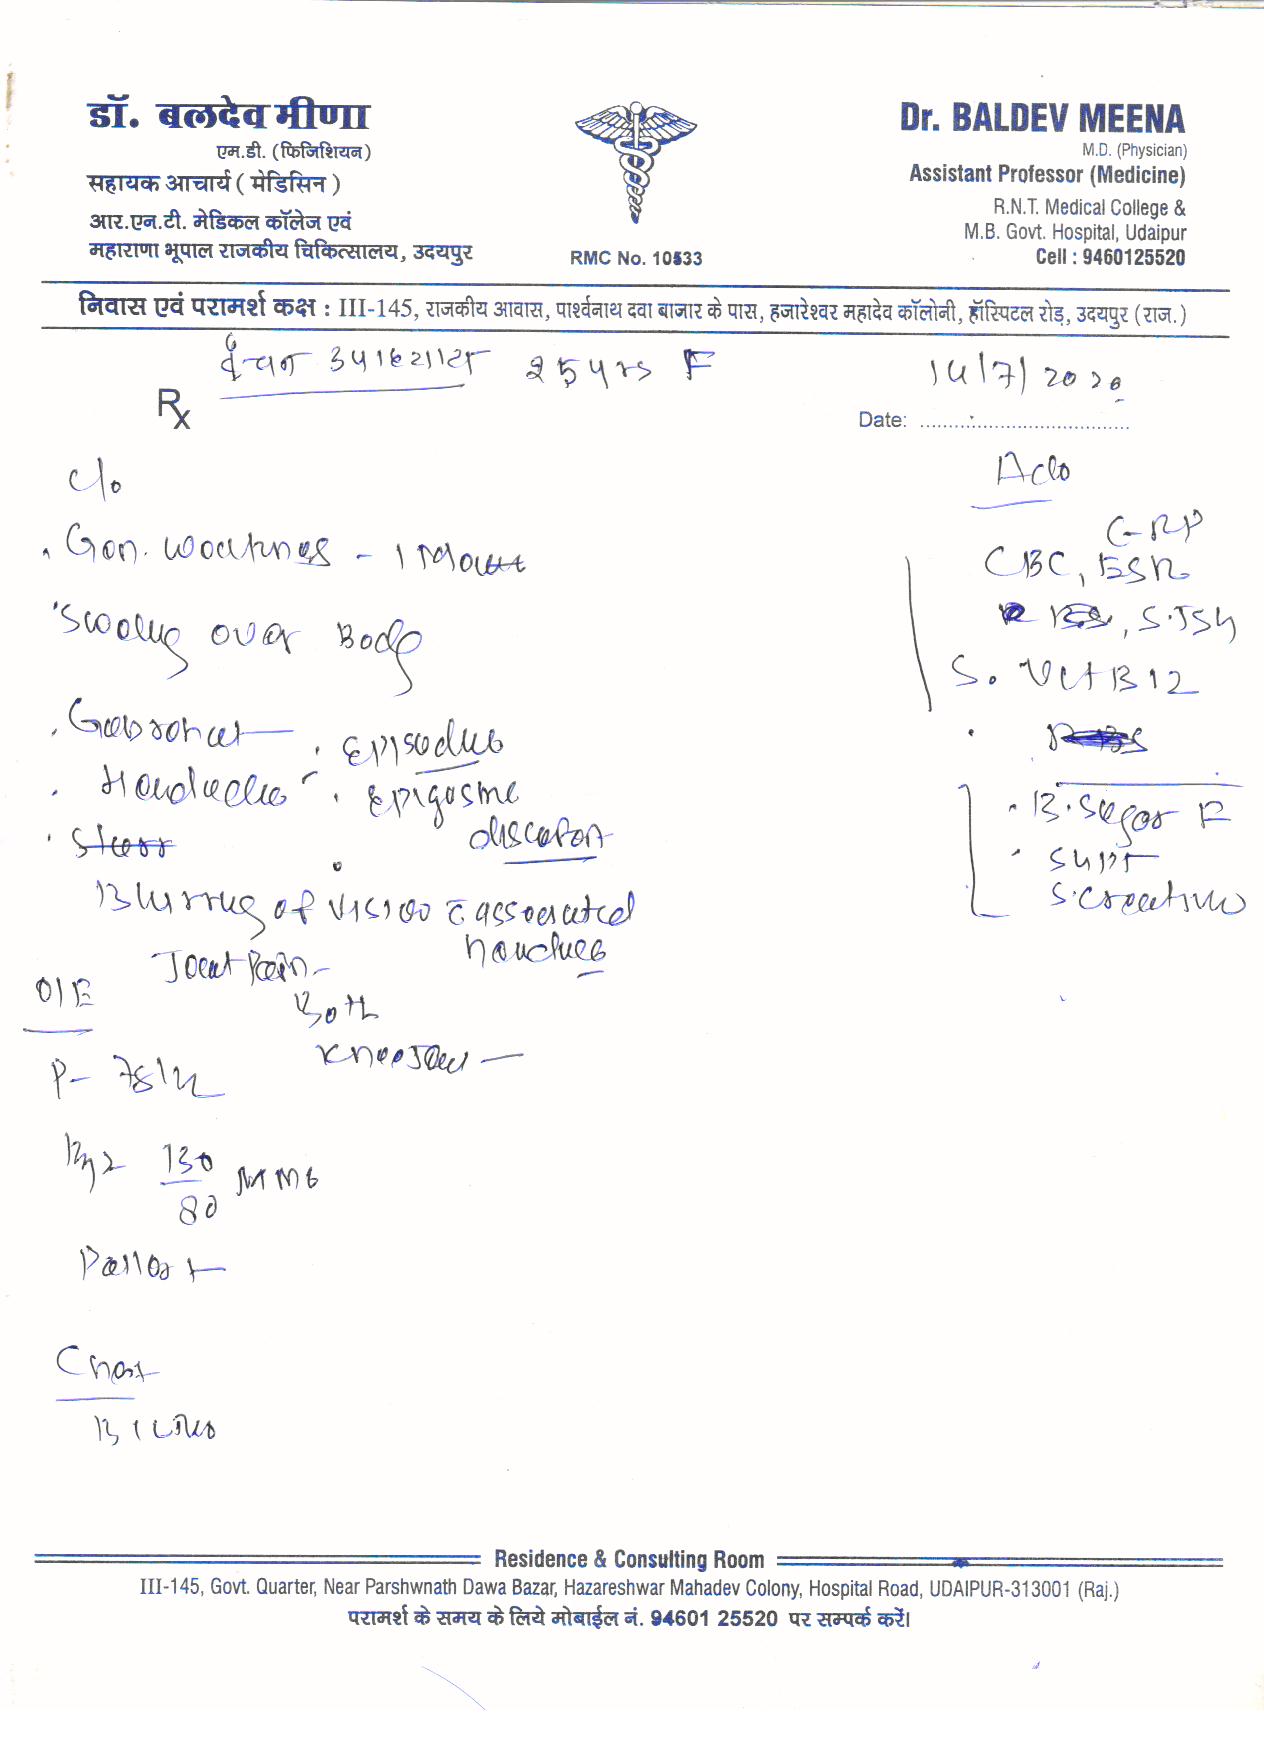 डॉ. बलदेव मीणा
एम.डी. (फिजिशियन)
सहायक आचार्य ( मेडिसिन )
आर.एन.टी. मेडिकल कॉलेज एवं
महाराणा भूपाल राजकीय चिकित्सालय, उदयपुर
RMC No. 10533
Dr. BALDEV MEENA
M.D. (Physician)
Assistant Professor (Medicine)
R.N.T. Medical College &
M.B. Govt. Hospital, Udaipur
Cell : 9460125520
निवास एवं परामर्श कक्ष : III-145, राजकीय आवास, पार्श्वनाथ दवा बाजार के पास, हजारेश्वर महादेव कॉलोनी, हॉस्पिटल रोड़, उदयपुर (राज.)
25 yrs F
14/7/2020
Rx
Date: ........................................
c/o
Gen. weakness - 1 Month
Swelling over Body
Episodic
Headache
Epigastric
Blurring of vision c associated
headache
Joint Pain -
Both
Knee Joint
O/E
P- 78/m
130
80
Pallor +
Chest
B/L
CRP
CBC, ESR
S.TSH
S. Vit B12
B. Sugar F
SGPT
S. Creatinine
Residence & Consulting Room
III-145, Govt. Quarter, Near Parshwnath Dawa Bazar, Hazareshwar Mahadev Colony, Hospital Road, UDAIPUR-313001 (Raj.)
परामर्श के समय के लिये मोबाईल नं. 94601 25520 पर सम्पर्क करें।